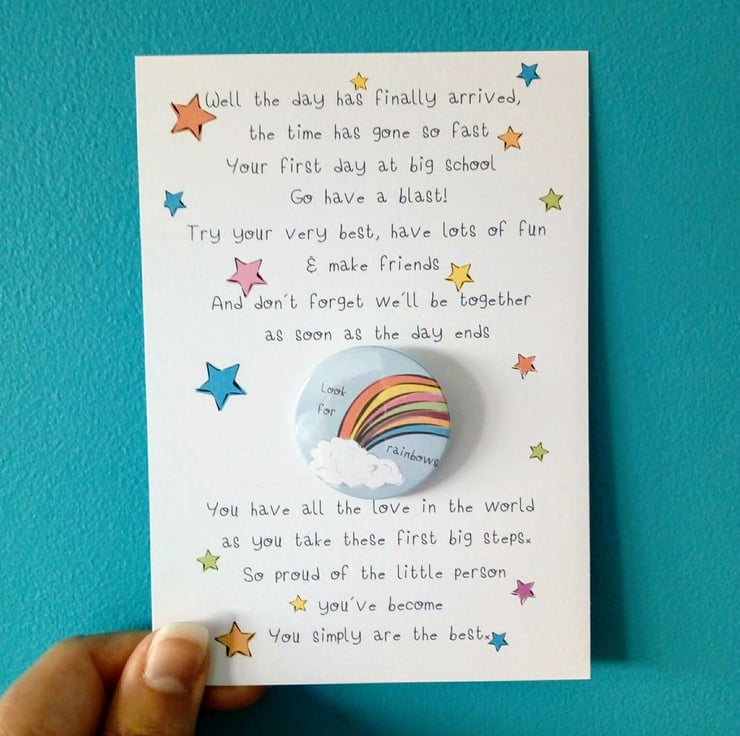 Well the day has finally arrived,
the time has gone so fast
Your first day at big school
Go have a blast!
Try your very best, have lots of fun
& make friends
And don't forget we'll be together
as soon as the day ends
Look
for
rainbows
You have all the love in the world
as you take these first big steps.x
So proud of the little person
you've become
You simply are the best.x